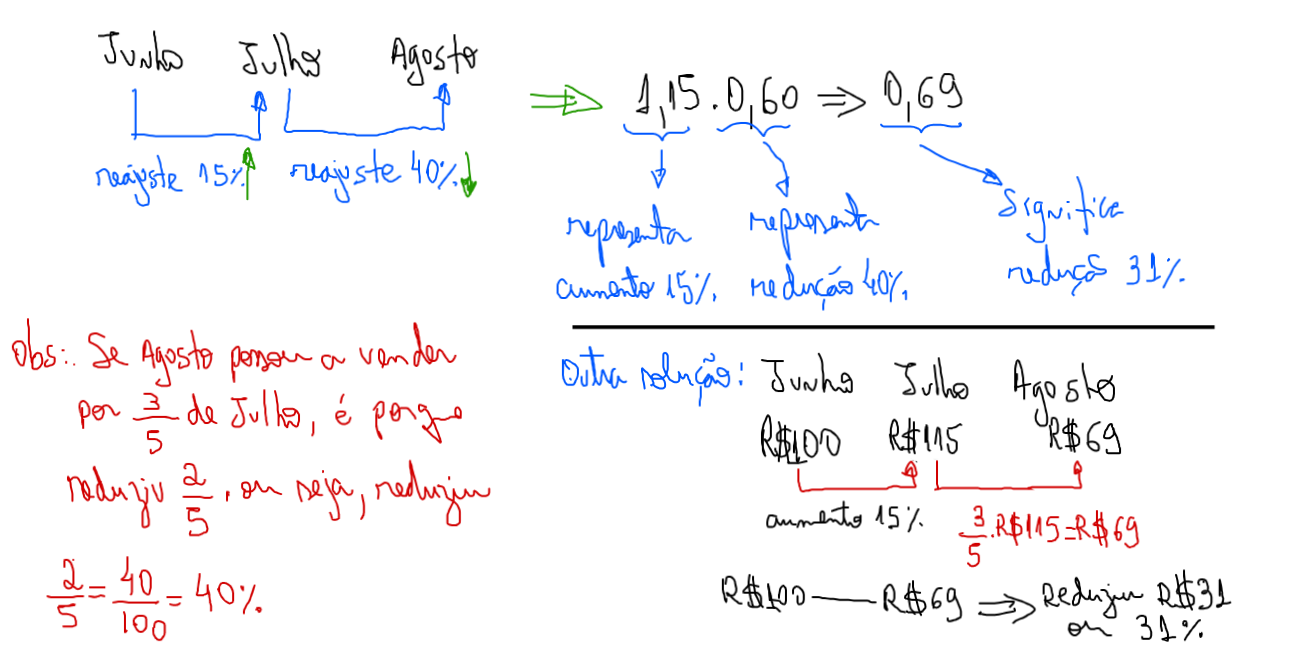 Junho Julho Agosto
reajuste 15% reajuste 40%
1,15 . 0,60 ⇒ 0,69
representa aumento 15%.
representa redução 40%.
Significa redução 31%.
Obs:. Se Agosto passou a vender
por 3/5 de Julho, é porque
reduziu 2/5, ou seja, reduziu
2/5 = 40/100 = 40%.
Outra solução: Junho Julho Agosto
R$100 R$115 R$69
aumento 15% 3/5.R$115=R$69
R$100 — R$69 ⇒ Reduziu R$31
ou 31%.